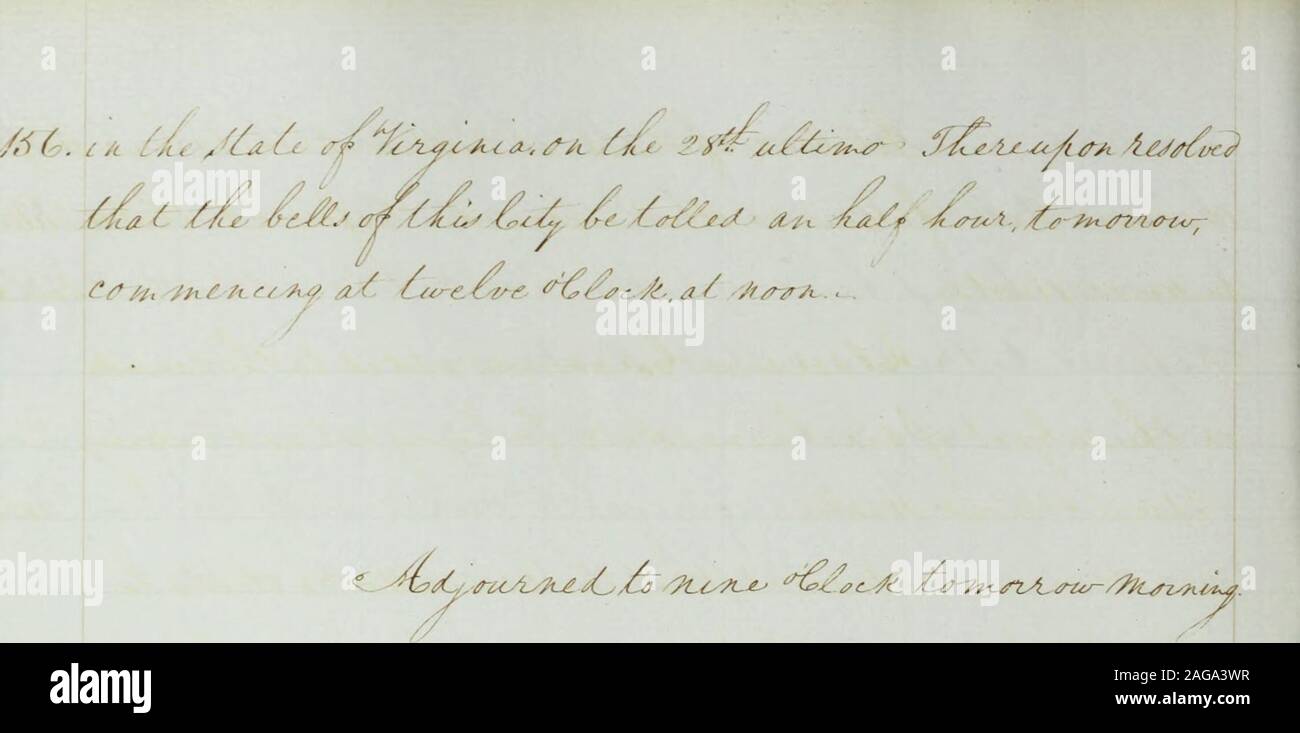 156. in the State of Virginia. on the 28th ultimo Thereupon resolved
that the bells of this City be tolled an half hour, tomorrow,
commencing at twelve o'Clock, at noon.
Adjourned to nine o'Clock tomorrow morning.
alamy
Image ID: 2AGA3WR
www.alamy.com